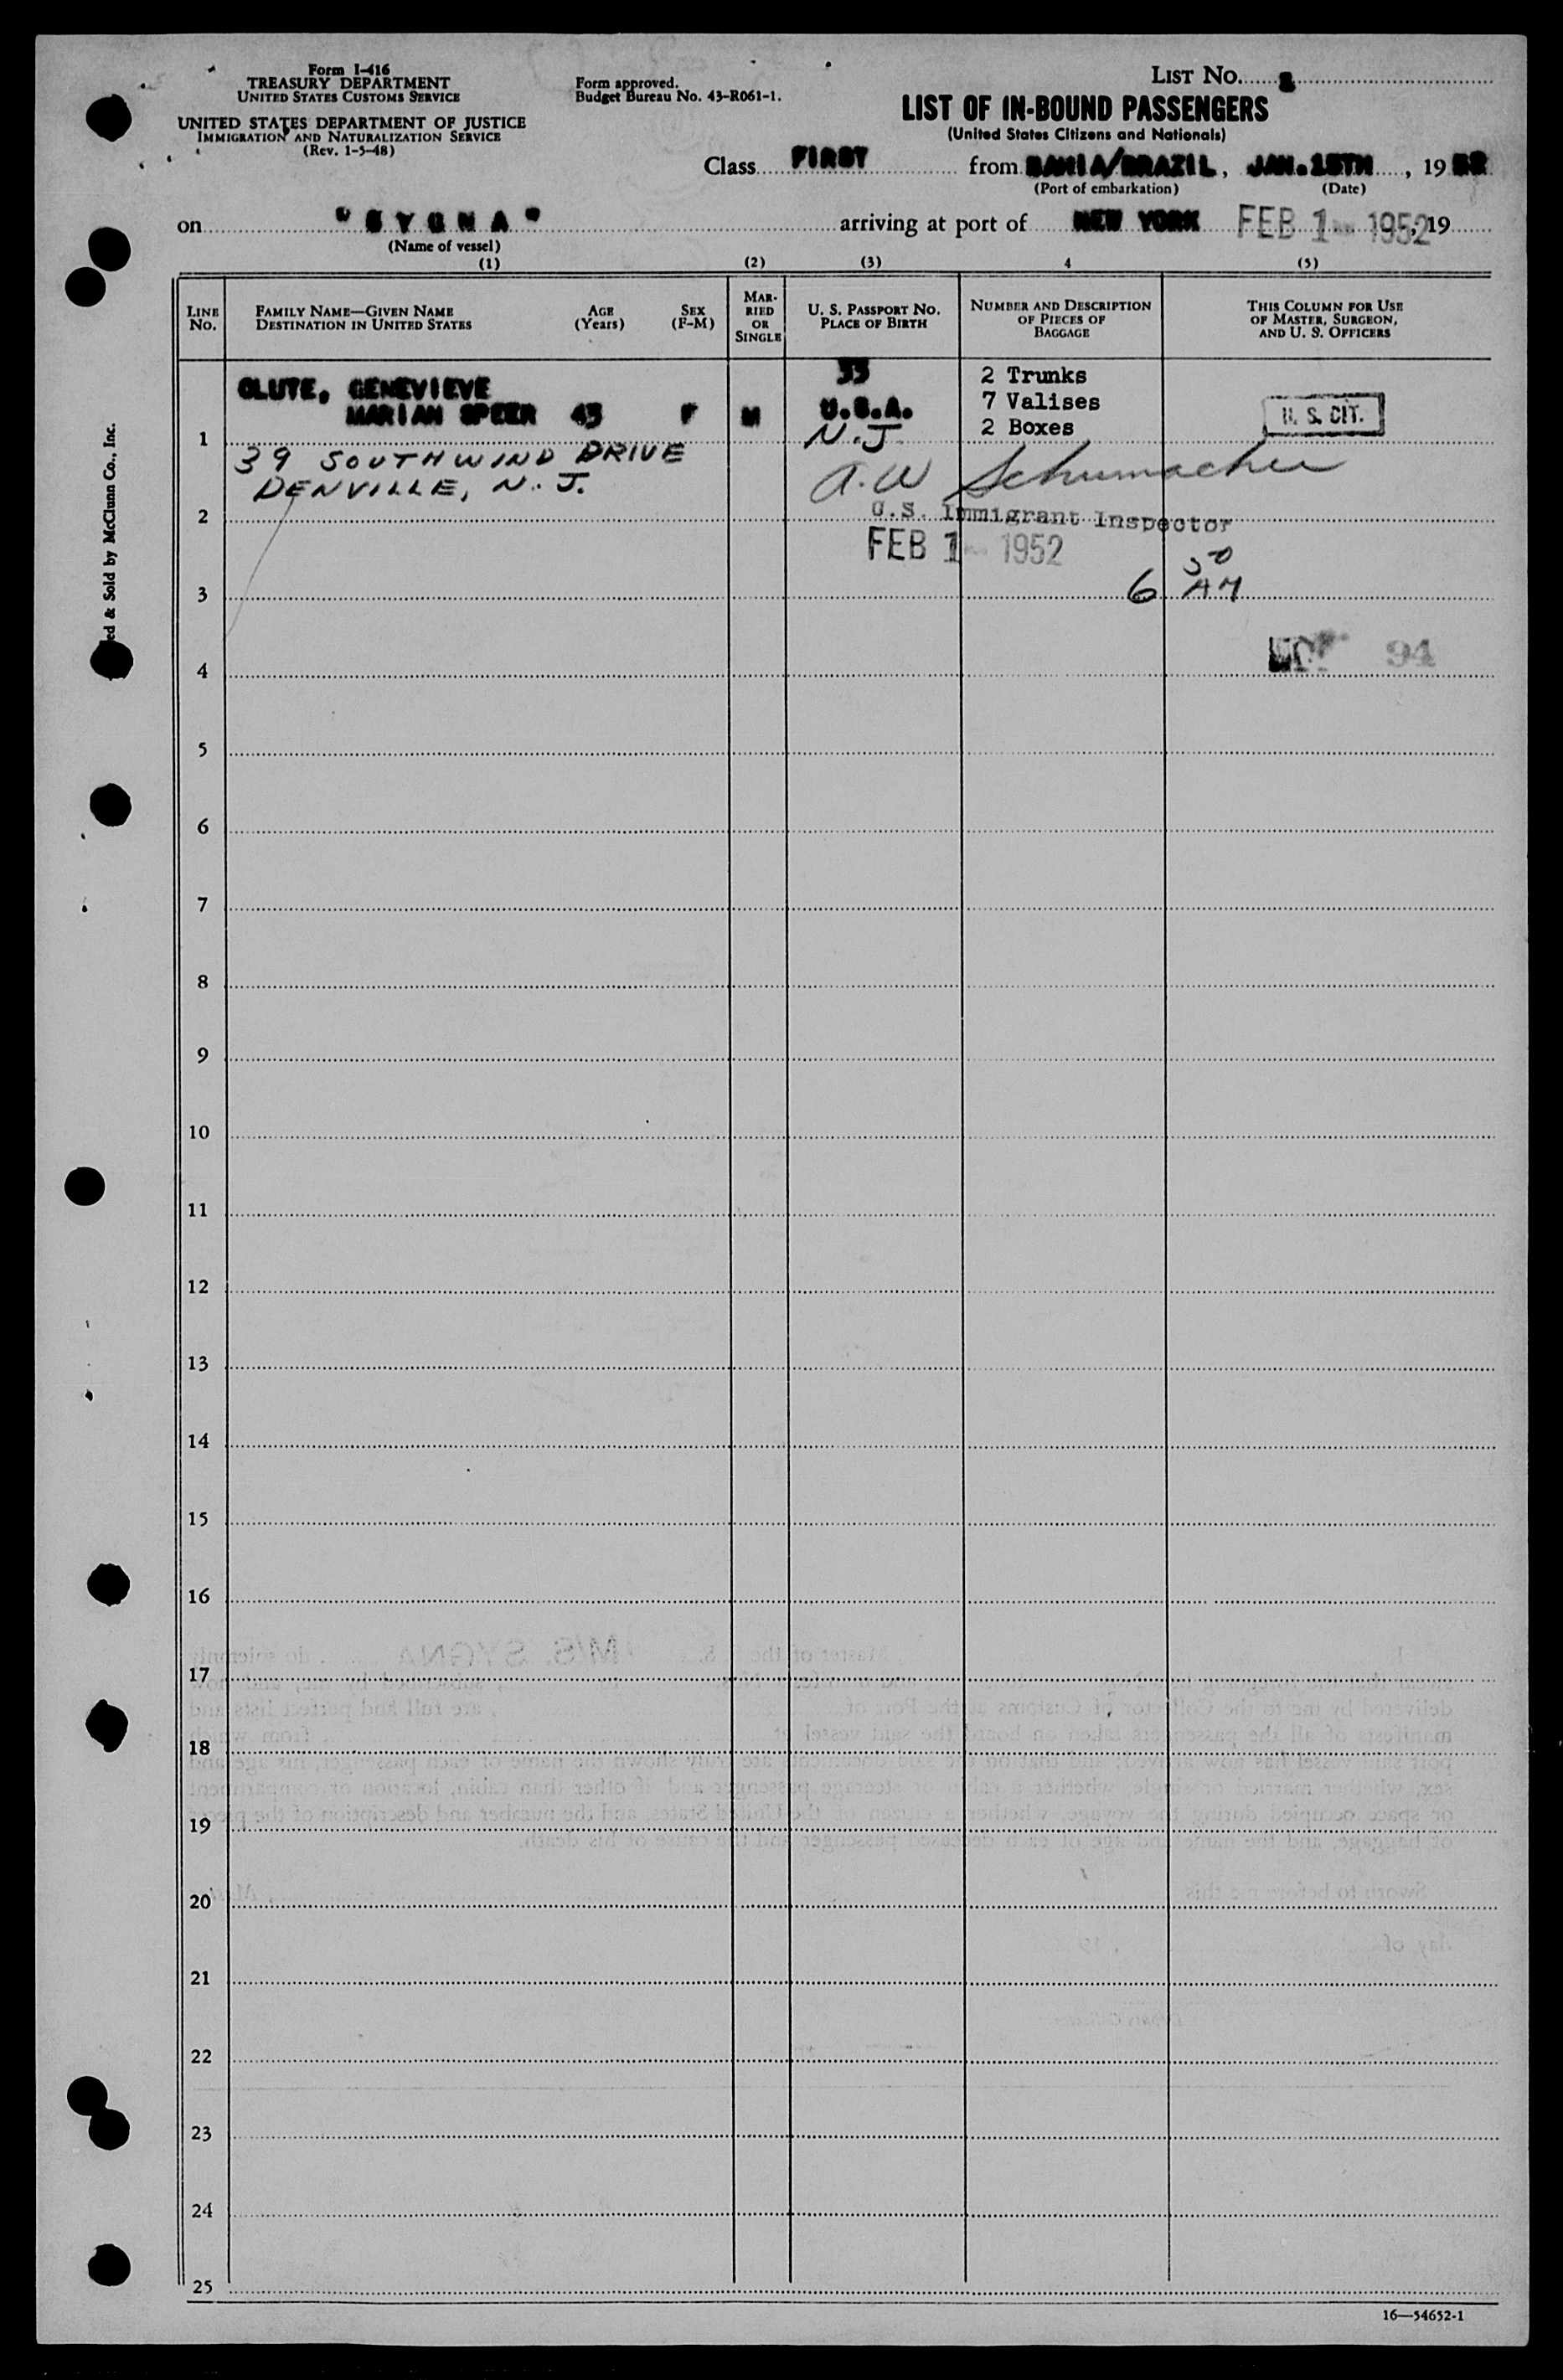 Form I-416
TREASURY DEPARTMENT
UNITED STATES CUSTOMS SERVICE
UNITED STATES DEPARTMENT OF JUSTICE
IMMIGRATION AND NATURALIZATION SERVICE
(Rev. 1-5-48)
Form approved.
Budget Bureau No. 43-R061-1.
LIST NO.
LIST OF IN-BOUND PASSENGERS
(United States Citizens and Nationals)
Class FIRST from BAHIA/BRAZIL, JAN.15TH, 1952
(Port of embarkation) (Date)
on "SYGNA" arriving at port of NEW YORK FEB 1 1952, 19
(Name of vessel)
(1) (2) (3) 4 (5)
LINE No. FAMILY NAME—GIVEN NAME DESTINATION IN UNITED STATES AGE (Years) SEX (F-M) MARRIED OR SINGLE U. S. PASSPORT NO. PLACE OF BIRTH NUMBER AND DESCRIPTION OF PIECES OF BAGGAGE THIS COLUMN FOR USE OF MASTER, SURGEON, AND U. S. OFFICERS
33 2 Trunks
CLUTE, GENEVIEVE 7 Valises
MARIAN SPEER 43 F M U.S.A. U. S. CIT.
1 N.J. 2 Boxes
39 SOUTHWIND DRIVE
DENVILLE, N. J. A.W Schumacher
2 U.S. Immigrant Inspector
FEB 1 1952
50
3 6 AM
4 94
5
6
7
8
9
10
11
12
13
14
15
16
M/S. SYGNA
17
18
19
20
21
22
23
24
25
16—54652-1
ed & Sold by McClunn Co., Inc.